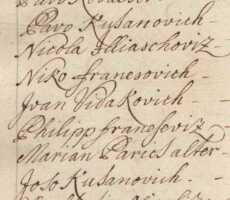 Pavo Kusanovich
Nicola Illiaschoviz -
Niko francsovich -
Jvan Vidakovich -
Philipp francsoviz -
Marian Parics alter -
Joso Kusanovich -